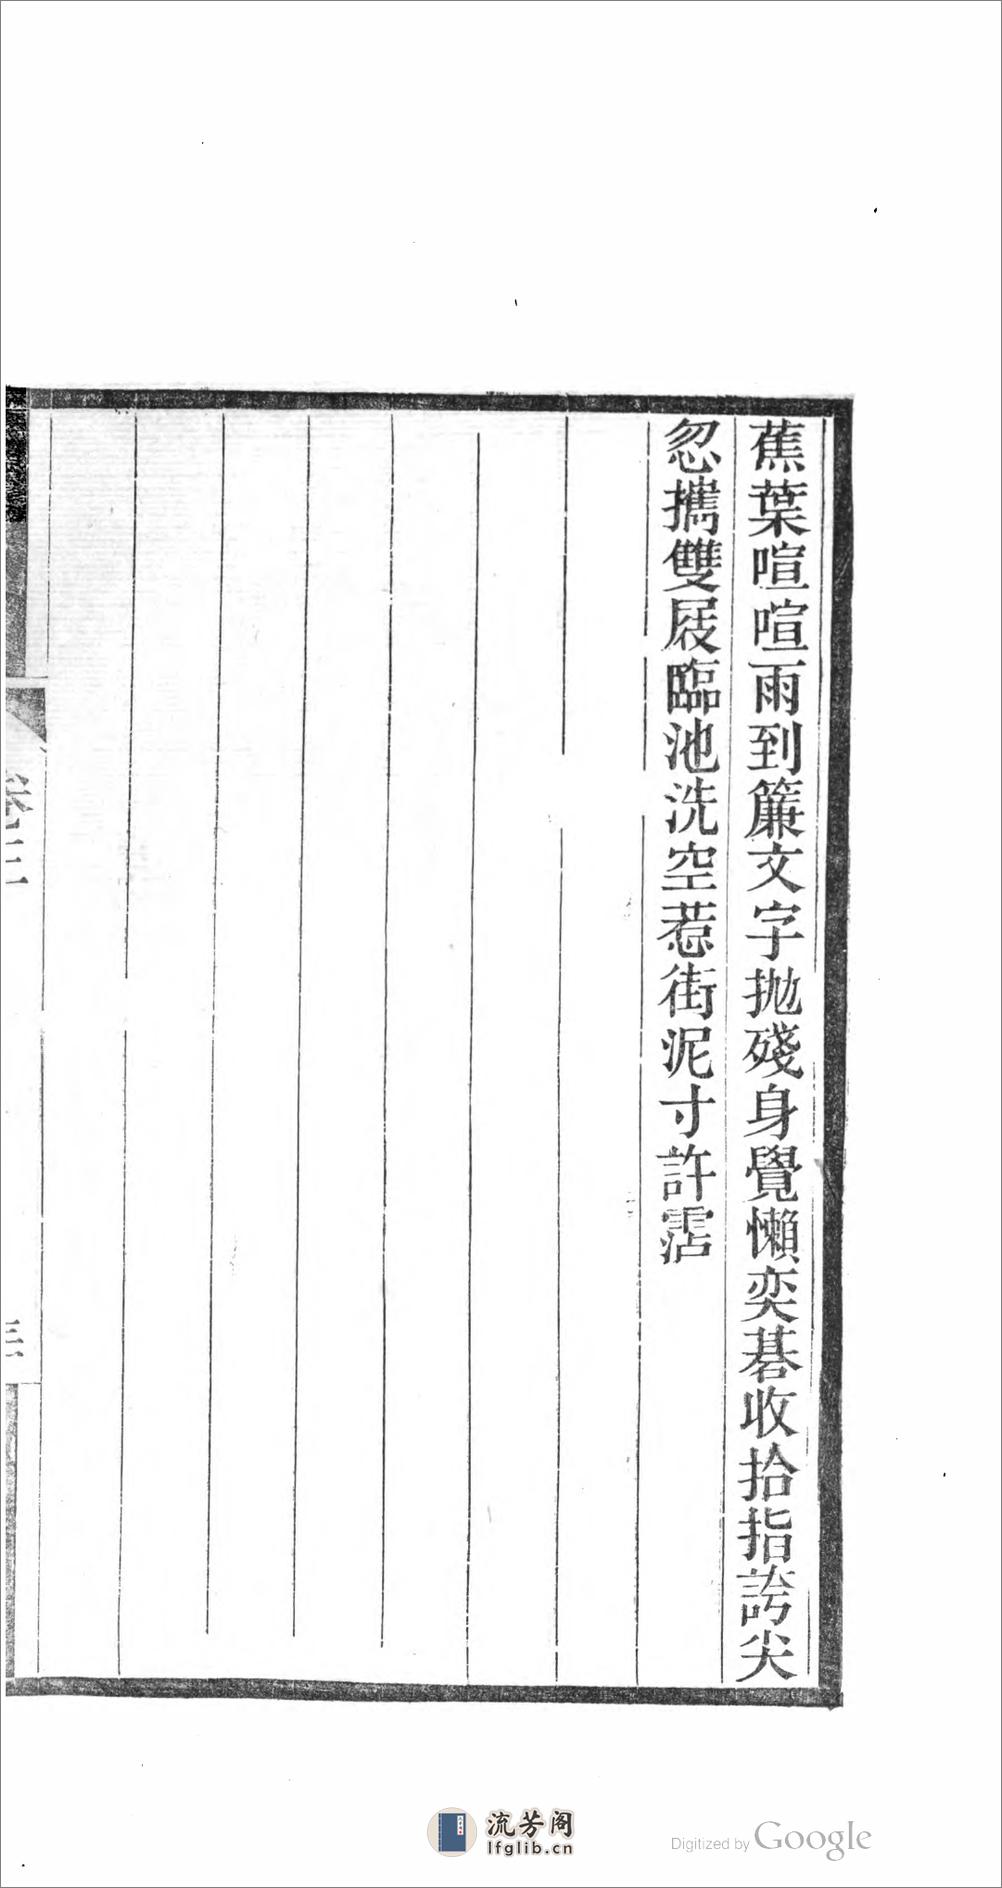 蕉葉喧喧雨到簾文字拋殘身覺懶奕碁收拾指誇尖
忽攜雙屐臨池洗空惹街泥寸許霑
卷三
三
流芳阁
lfglib.cn
Digitized by Google